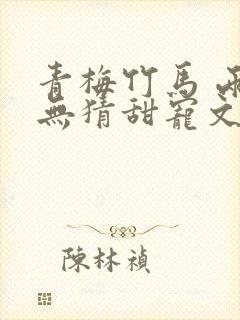 青梅竹馬 兩
無猜甜寵文
陳林禎